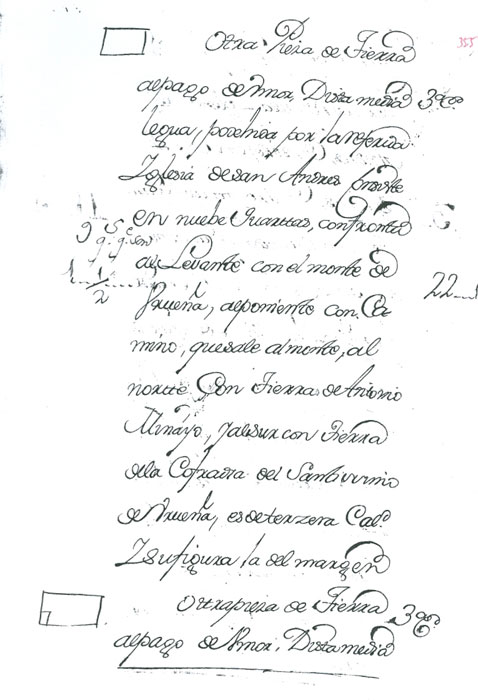 355
Otra Pieza de Tierra
al pago de Amor, Dista media 3ª Cº
legua, posehida por la referida
Yglesia de san Andres consiste
en nuebe Quarttas, confronta
9 Q.s 3.a
al Levante con el monte de
1 1/2
22
Brueña, al poniente con Ca
mino, que sale al monte, al
nortte Con Tierra de Antonio
Minayo, y al sur con Tierra
de la Cofradia del Santissimo
de Brueña, es de terzera Calº
Y su figura la del margen
Otra pieza de Tierra 3ª Cº
al pago de Amor, Dista media